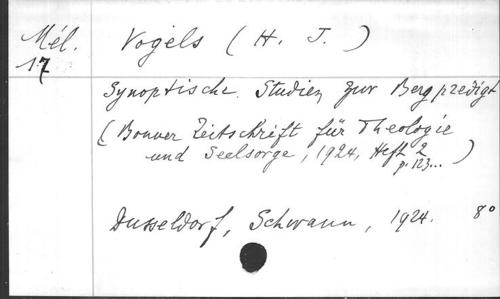 Mél. Vogels (H. J.)
17
Synoptische Studien zur Bergpredigt
(Bonner Zeitschrift für Theologie
und Seelsorge, 1924, Heft 2
p. 123...)
Dusseldorf, Schwann, 1924. 8°